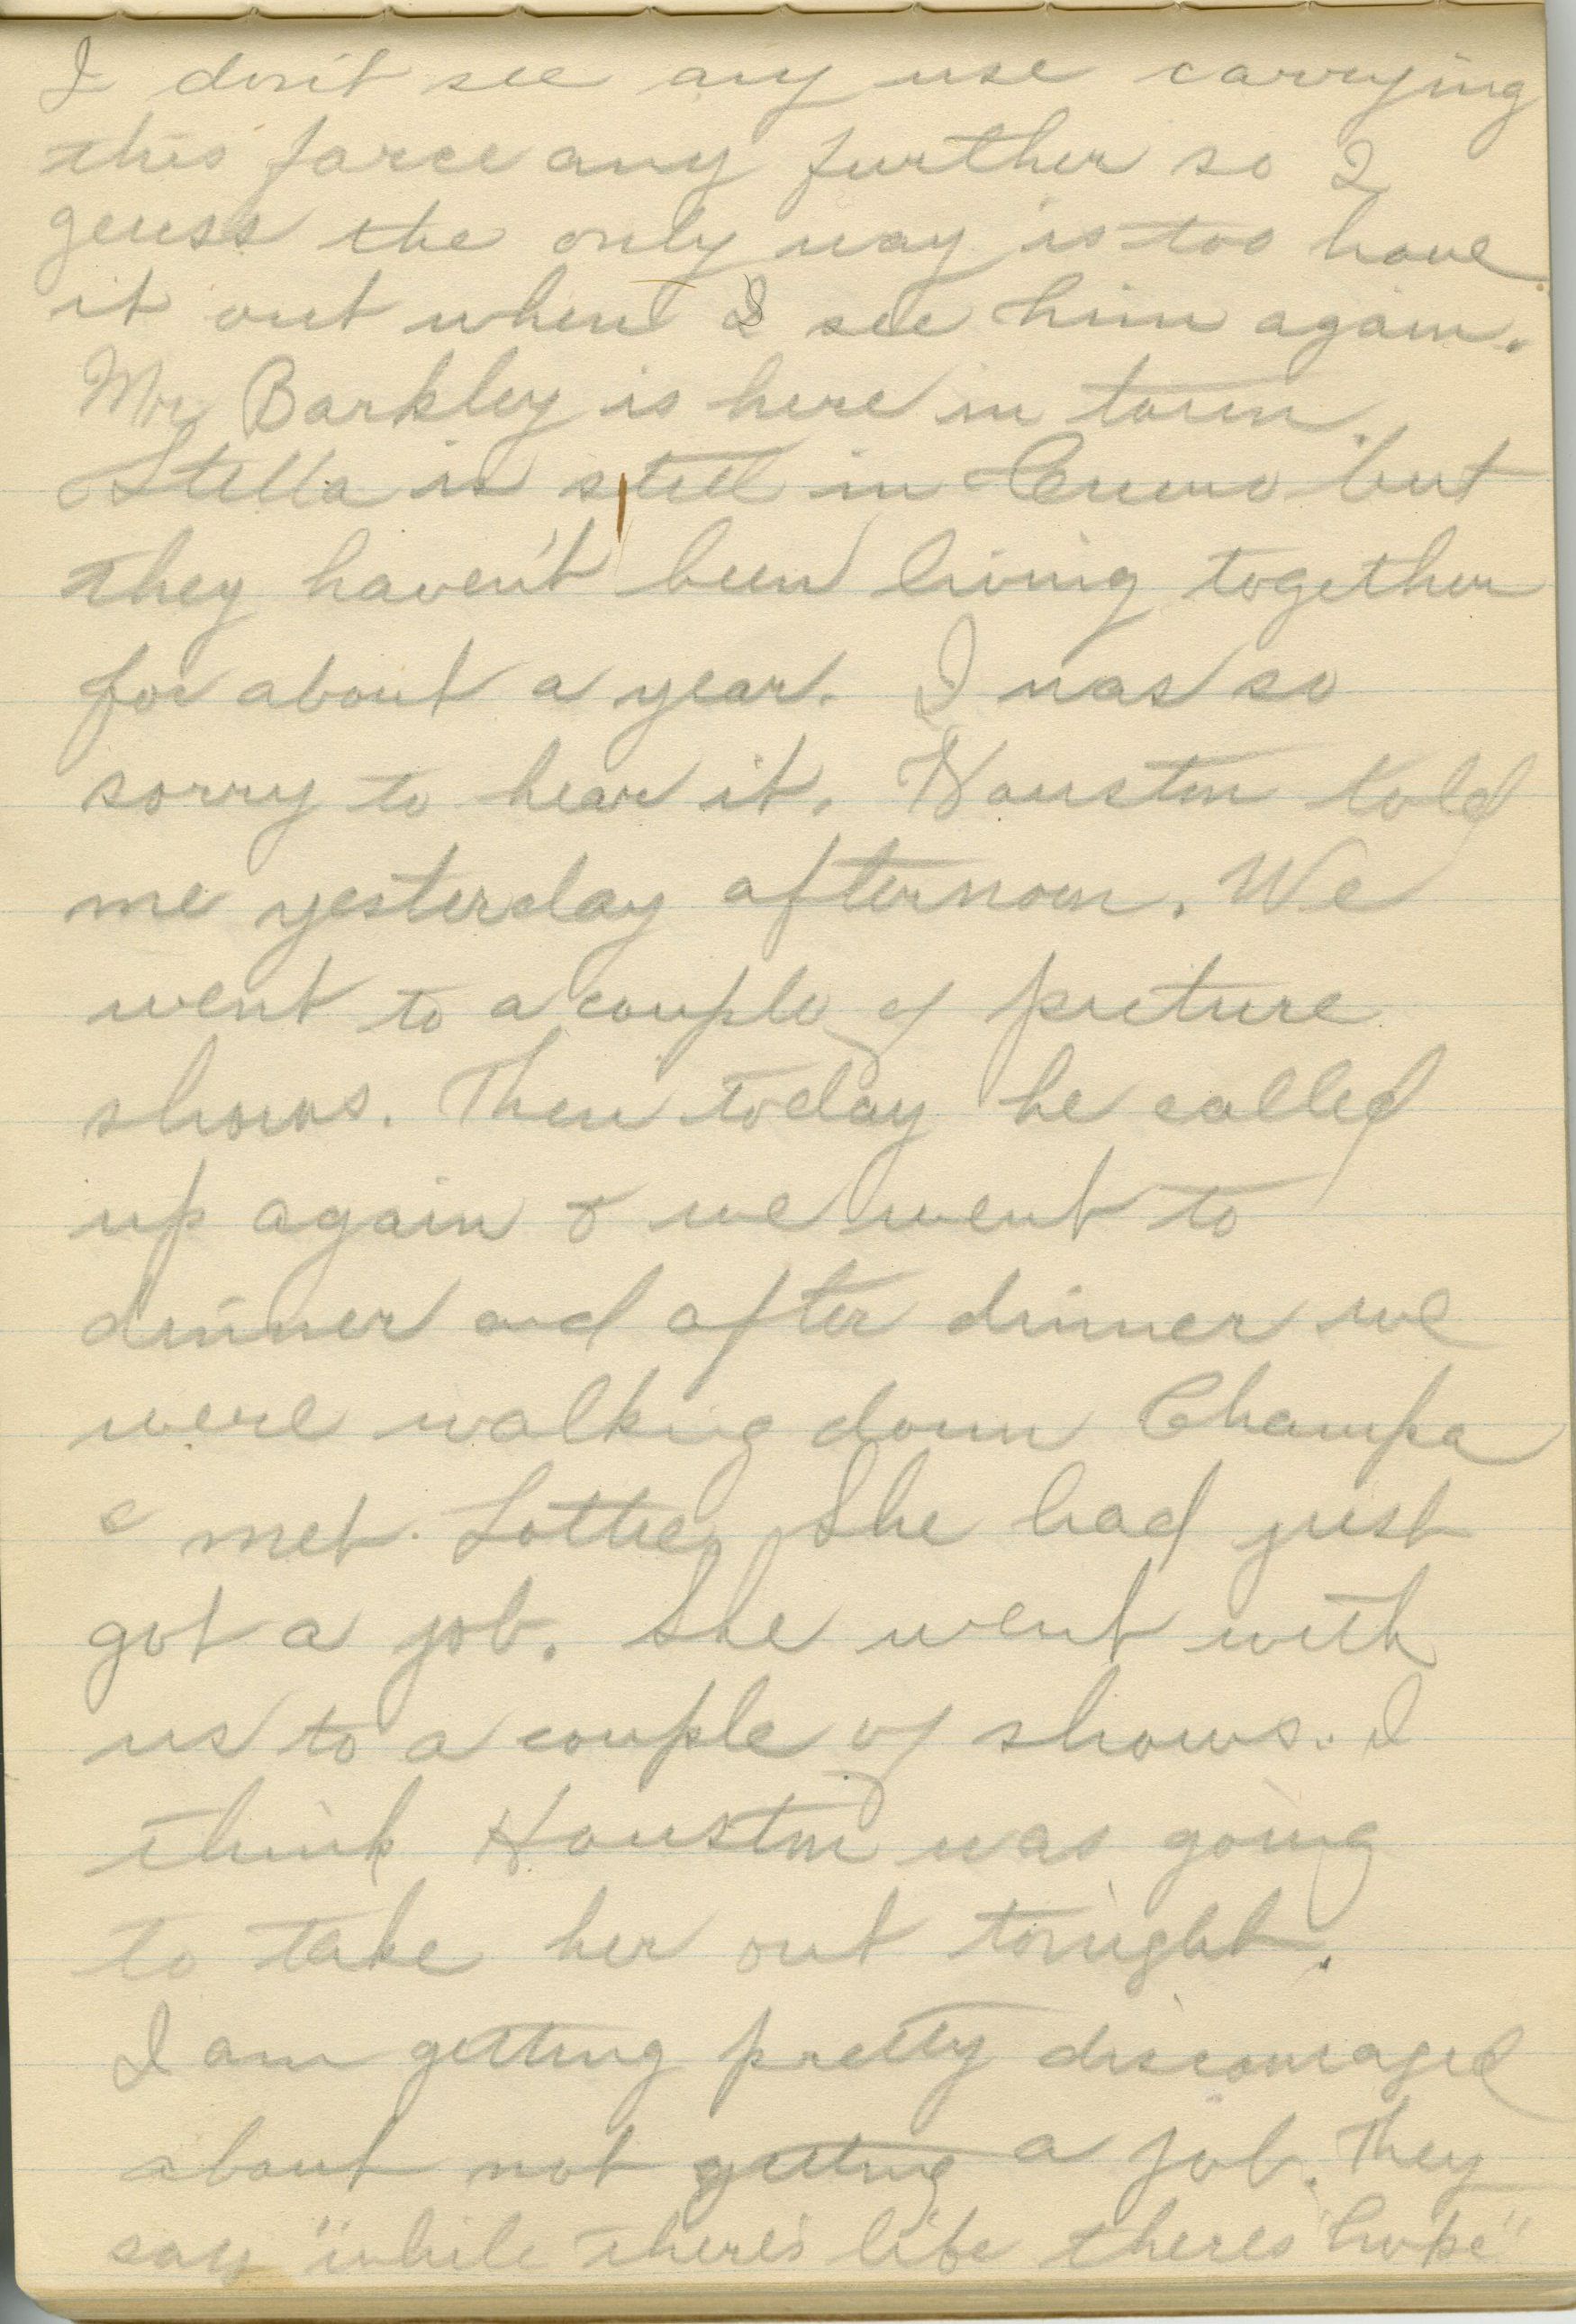 I don't see any use carrying
this farce any further so I
geuss the only way is too have
it out when I see him again.
Mr Barkley is here in town.
Stella is still in but
they haven't been living together
for about a year. I was so
sorry to hear it. Houston told
me yesterday afternoon. We
went to a couple of picture
shows. Then today he called
up again & we went to
dinner and after dinner we
were walking down Champa
& met Lottie. She had just
got a job. She went with
us to a couple of shows. I
think Houston was going
to take her out tonight.
I am getting pretty discouraged
about not getting a job. They
say "while there's life theres hope"